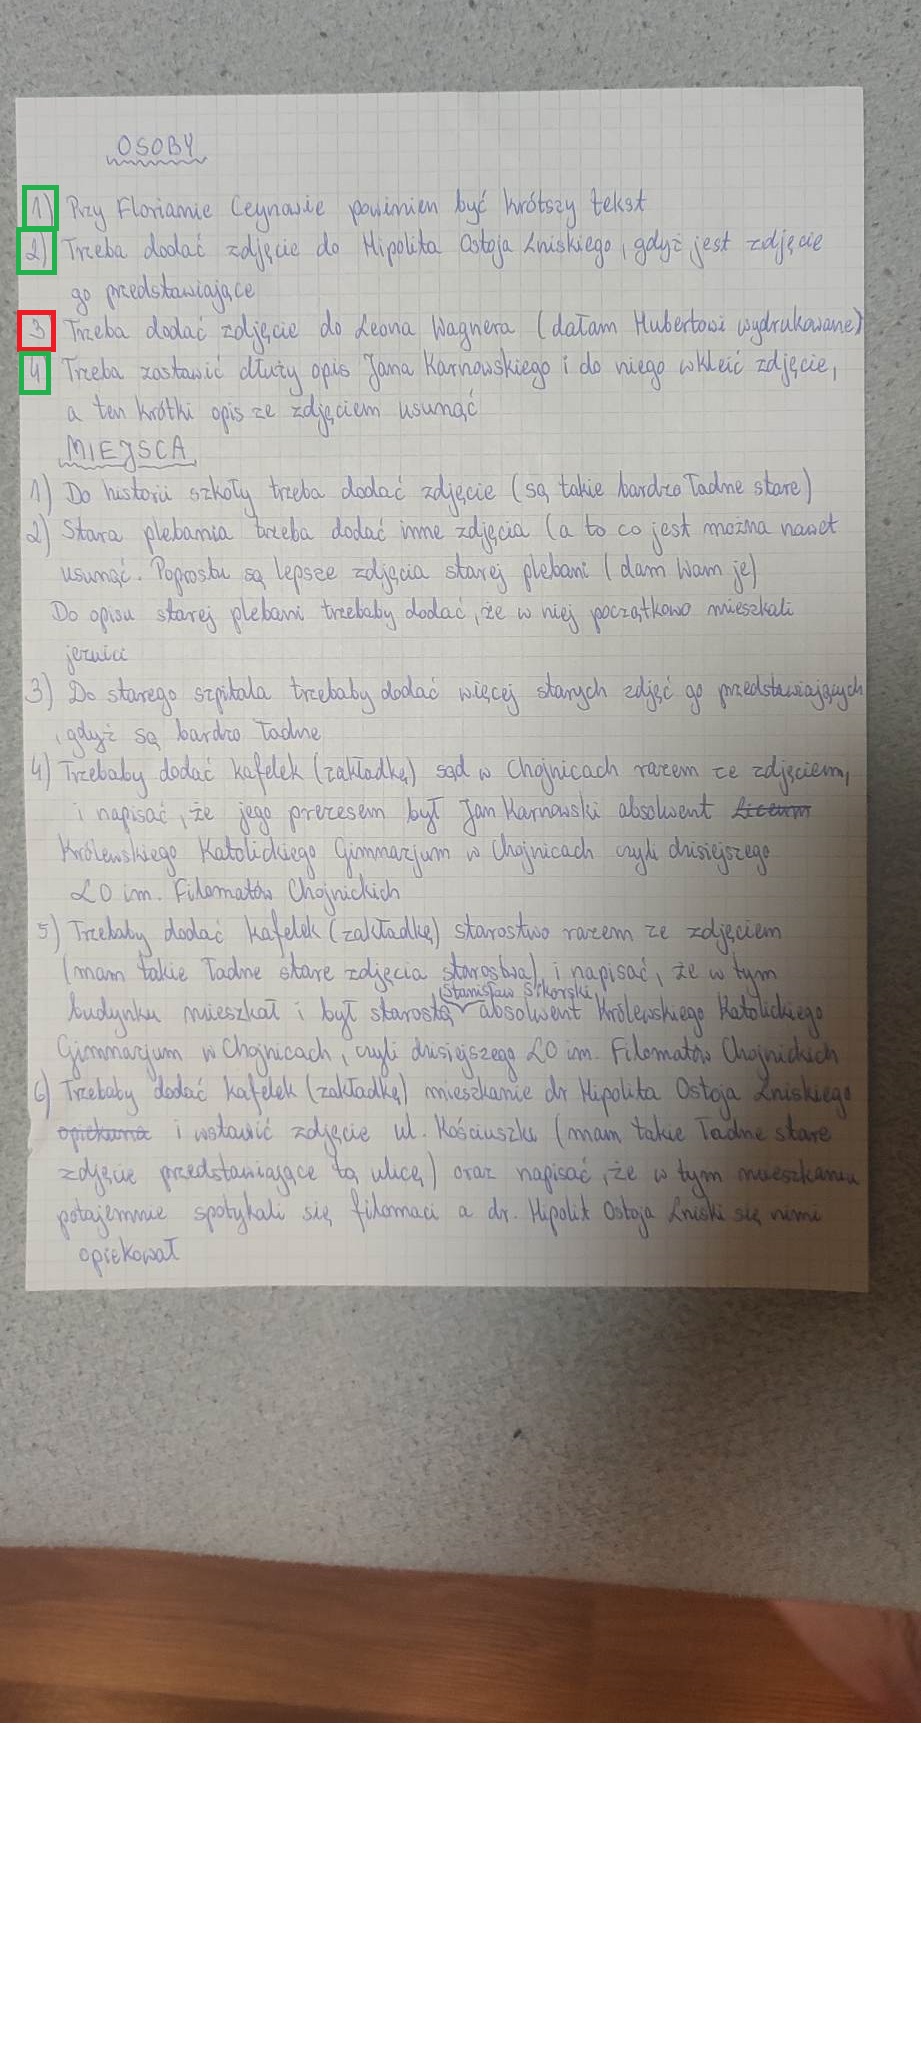 OSOBY
1) Przy Florianie Ceynowie powinien być krótszy tekst
2) Trzeba dodać zdjęcie do Hipolita Ostoja Lniskiego, gdyż jest zdjęcie
go przedstawiające
3 Trzeba dodać zdjęcie do Leona Wagnera (dałam Hubertowi wydrukowane)
4 Trzeba zostawić dłuży opis Jana Karnowskiego i do niego wkleić zdjęcie,
a ten krótki opis ze zdjęciem usunąć
MIEJSCA
1) Do historii szkoły trzeba dodać zdjęcie (są takie bardzo ładne stare)
2) Stara plebania trzeba dodać inne zdjęcia (a to co jest można nawet
usunąć. Poprostu są lepsze zdjęcia starej plebani (dam Wam je)
Do opisu starej plebani trzebaby dodać, że w niej początkowo mieszkali
jezuici
3) Do starego szpitala trzebaby dodać więcej starych zdjęć go przedstawiających
, gdyż są bardzo ładne
4) Trzebaby dodać kafelek (zakładkę) sąd w Chojnicach razem ze zdjęciem,
i napisać, że jego prezesem był Jan Karnowski absolwent Liceum
Królewskiego Katolickiego Gimnazjum w Chojnicach czyli dzisiejszego
LO im. Filomatów Chojnickich
5) Trzebaby dodać kafelek (zakładkę) starostwo razem ze zdjęciem
(mam takie ładne stare zdjęcia starostwa), i napisać, że w tym
budynku mieszkał i był starostą Stanisław Sikorski absolwent Królewskiego Katolickiego
Gimnazjum w Chojnicach, czyli dzisiejszego LO im. Filomatów Chojnickich
6) Trzebaby dodać kafelek (zakładkę) mieszkanie dr Hipolita Ostoja Lniskiego
opiekuna i wstawić zdjęcie ul. Kościuszki (mam takie ładne stare
zdjęcie przedstawiające tą ulicę) oraz napisać, że w tym mieszkaniu
potajemnie spotykali się filomaci a dr. Hipolit Ostoja Lniski się nimi
opiekował